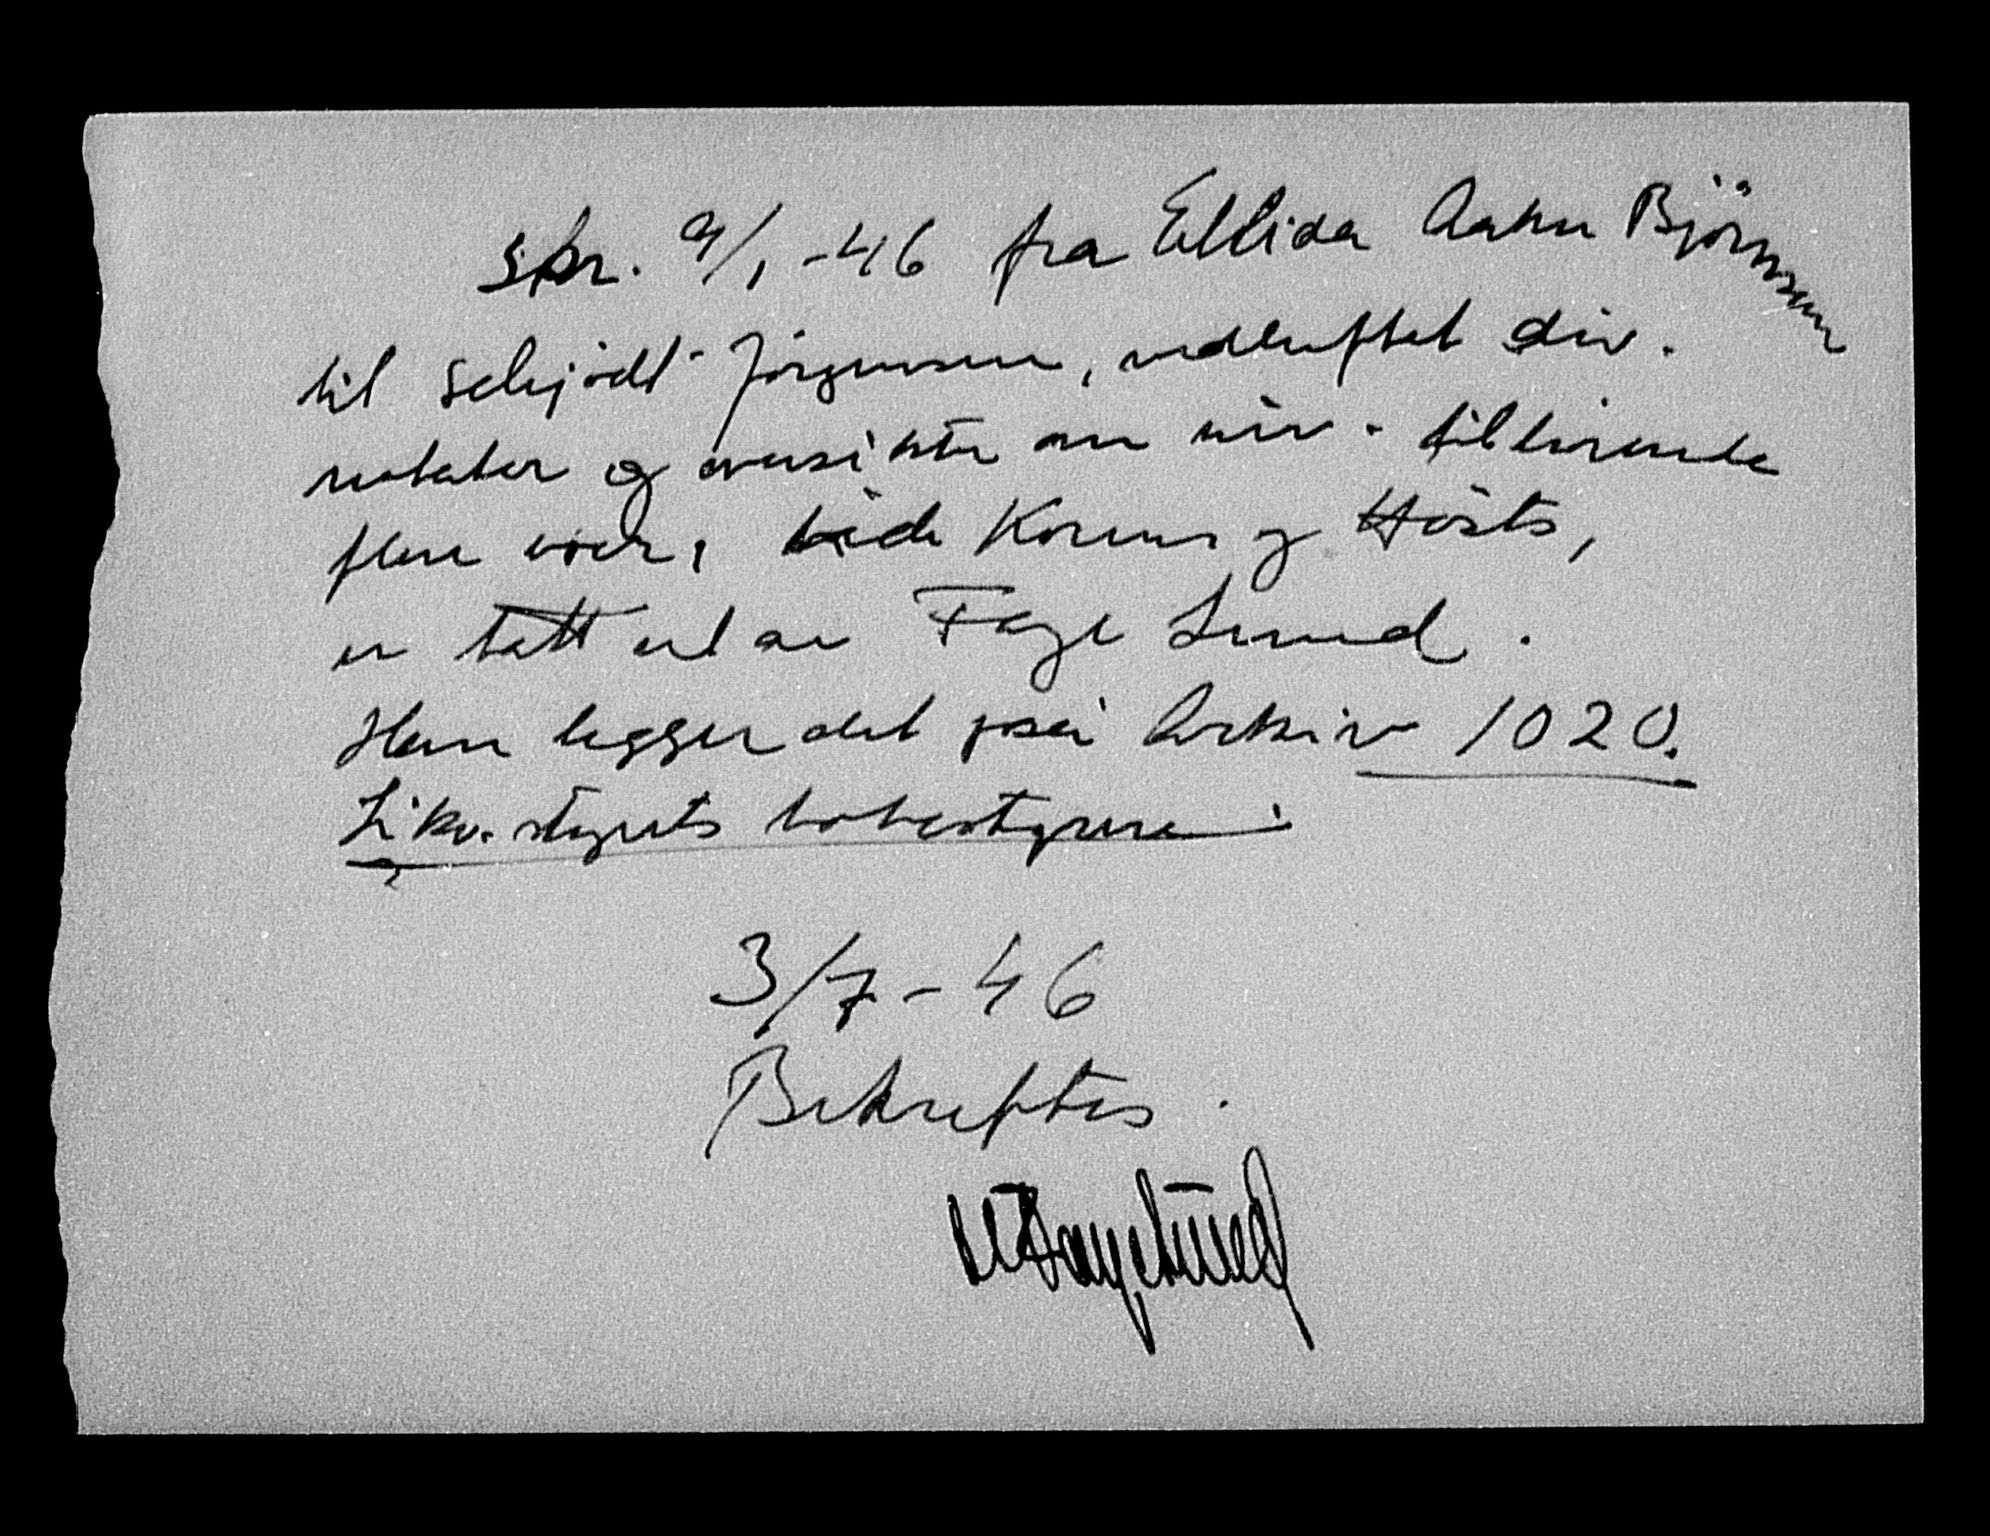 Skr. 9/1-46 fra Ellida Aaker Björnsen
til Schjödt Jörgensen, vedheftet div.
notater og oversikter om div. tilhörende
flere
Korenes og Hösts,
er tatt ut av Faye Lund.
Han legger det på Arkiv 1020.
Likv. styrets bobestyrere
3/7-46
Bekreftes.
Faye Lund